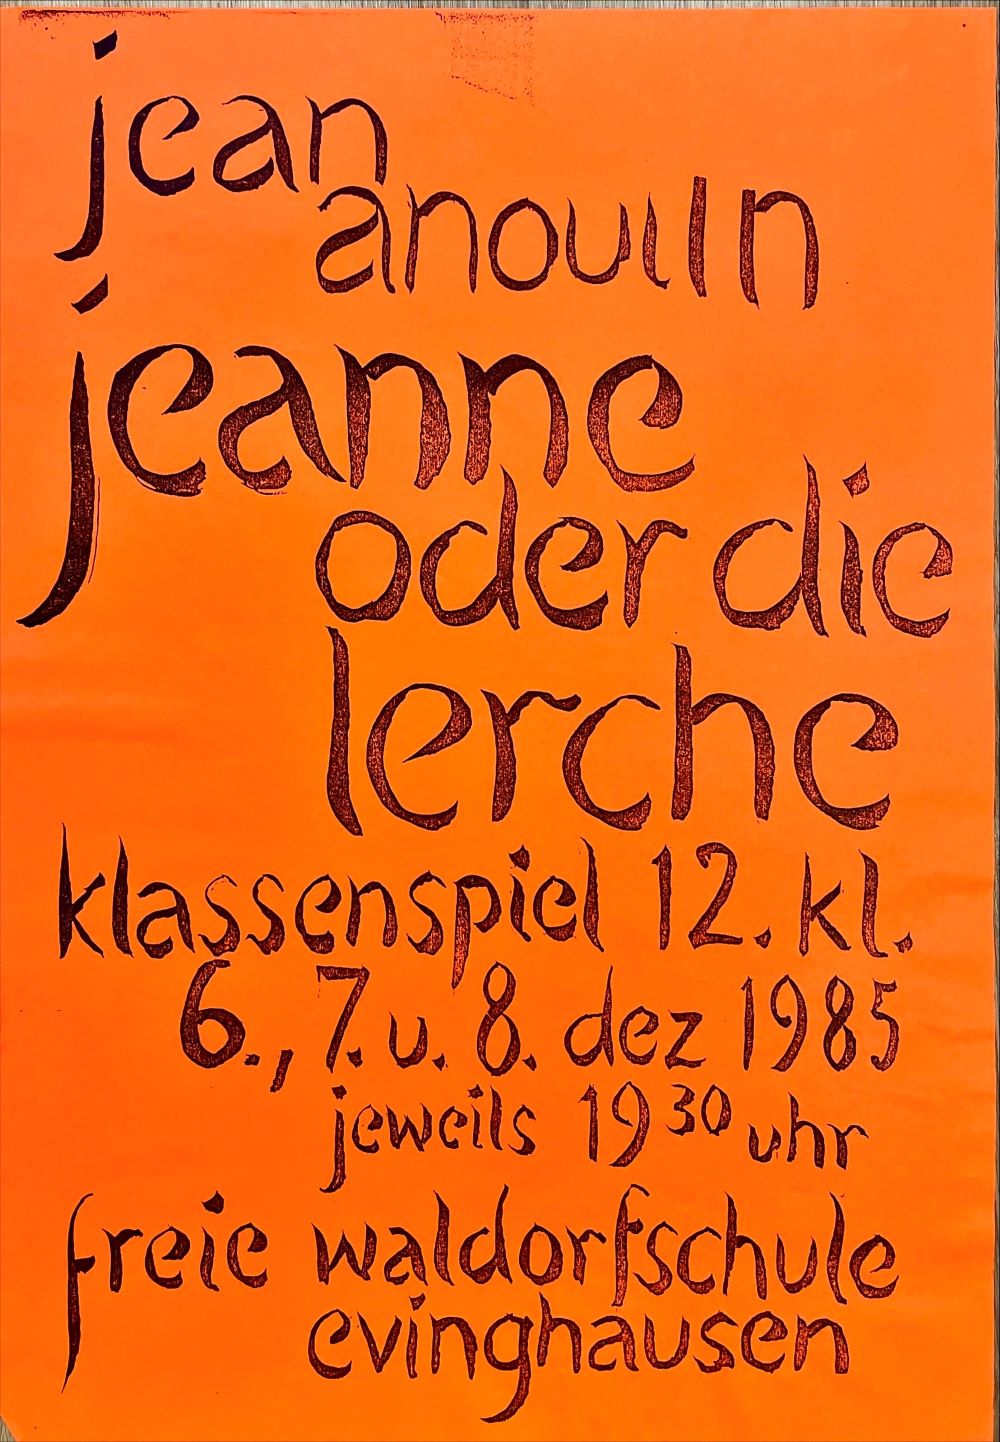 jean
anouiln
jeanne
oder die
lerche
klassenspiel 12. kl.
6., 7. u. 8. dez 1985
jeweils 19³⁰ uhr
freie waldorfschule
evinghausen